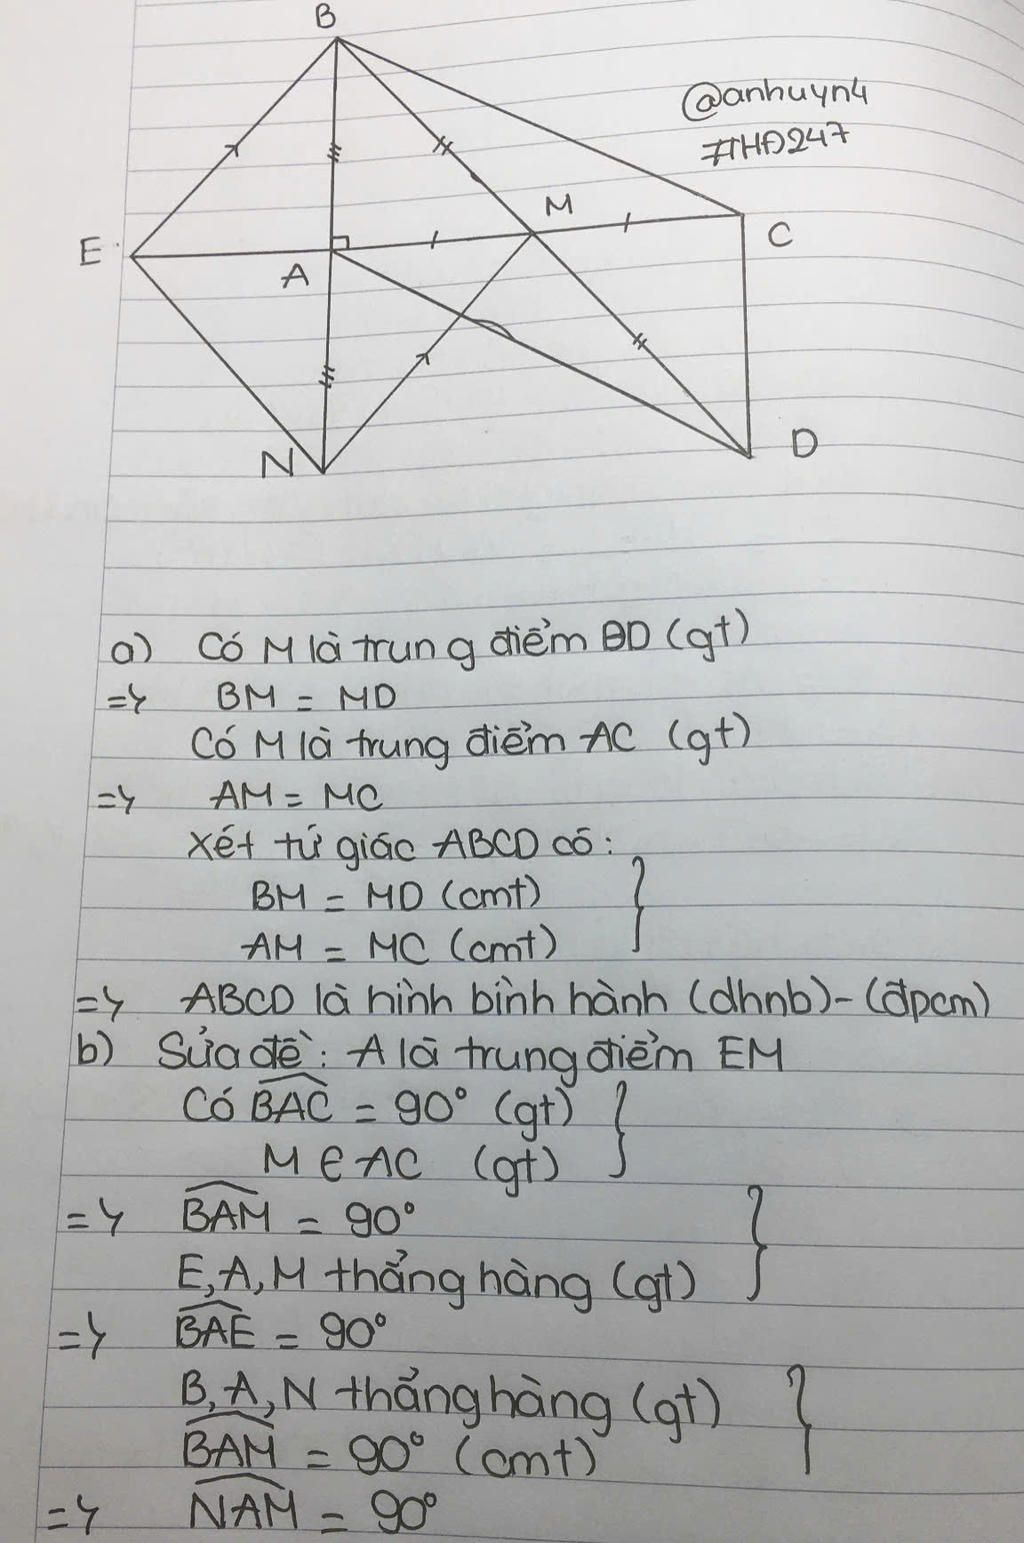 B
@anhuyn4
#HĐ247
M
E
C
A
D
N
a) Có M là trung điểm BD (gt)
=> BM = MD
Có M là trung điểm AC (gt)
=> AM = MC
Xét tứ giác ABCD có:
BM = MD (cmt)
AM = MC (cmt)
=> ABCD là hình bình hành (dhnb) - (đpcm)
b) Sửa đề: A là trung điểm EM
Có \widehat{BAC} = 90° (gt)
M ∈ AC (gt)
=> \widehat{BAM} = 90°
E, A, M thẳng hàng (gt)
=> \widehat{BAE} = 90°
B, A, N thẳng hàng (gt)
\widehat{BAM} = 90° (cmt)
=> \widehat{NAM} = 90°